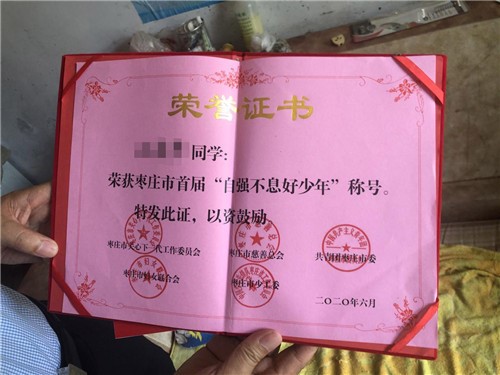 荣誉证书
同学：
荣获枣庄市首届“自强不息好少年”称号。
特发此证，以资鼓励。
枣庄市关心下一代工作委员会
枣庄市慈善总会
共青团枣庄市委
枣庄市妇女联合会
枣庄市少工委
二〇二〇年六月